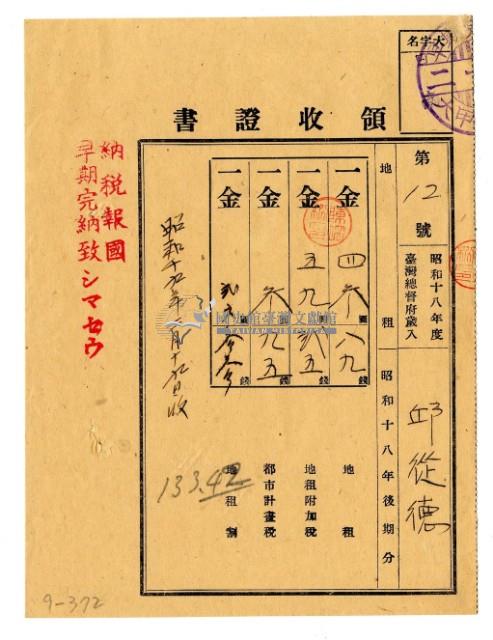 大字名
領收證書
第12號
昭和十八年度
臺灣總督府歲入
地租
昭和十八年後期分
邱從德
一金 四叁圓八九錢 地租
一金 五九圓弍五錢 地租附加税
一金 叁圓九五錢 都市計畫税
一金 圓錢 地租割
133.42
昭和十九年 月十九日收
納税報國
早期完納致シマセウ
國史館臺灣文獻館
TAIWAN HISTORICA
9-372